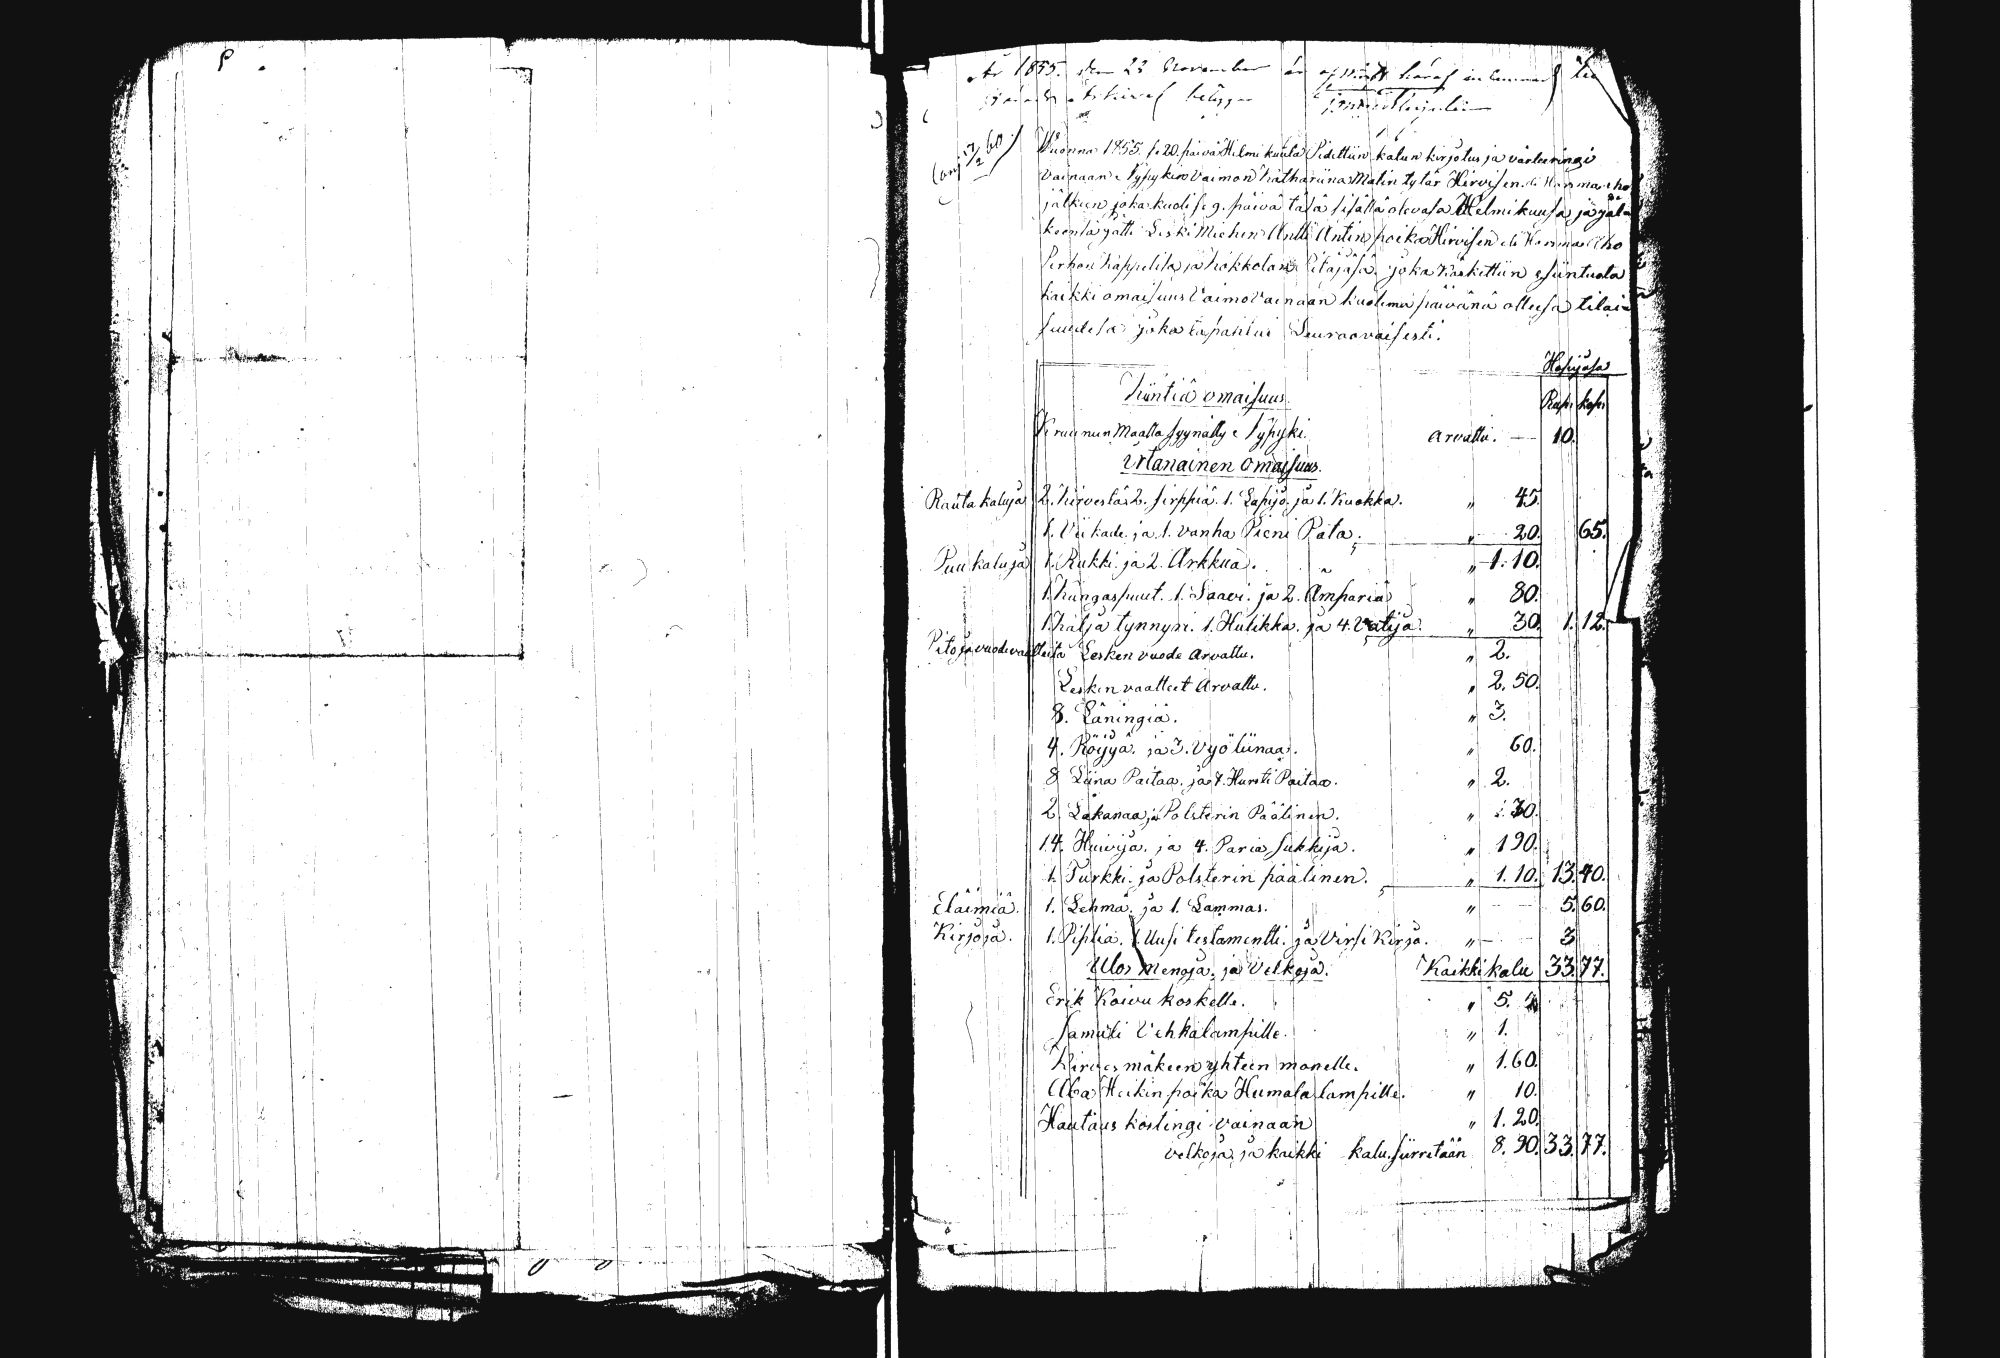 År 1855. den 23 November är
Vuonna 1855. se 20. päivä Helmi kuuta Pidettiin kalun kirjotus ja värteeringi
vainaan Nypykin Vaimon Katharina Matin tytär Hirvisen eli Harma aho
jälkeen joka kuoli se 9. päivä täsä sisällä olevasa Helmikuusa ja jälä
keensä jätti Leski Miehen Antti Antin poika Hirvisen eli Harma Aho
Perhon Kappelisa ja Kokkolan Pitäjäsä. joka Käskettiin esiintuoda
kaikki omaisuus Vaimo Vainaan kuolema päivänä ollesa tilai
suudesa joka tapahtui Seuraavaisesti.
Hopijasa
Kiintiä omaisuus. Rup. kop.
Kruunun Maalla syynätty Nypyki. Arvattu. — 10.
Irtanainen omaisuus.
Rauta kaluja 2. Kirvestä 2. sirppiä. 1. Lapijo. ja 1. Kuokka. „ 45.
1. Viikade. ja 1. vanha Pieni Pata. „ 20. 65.
Puu kaluja 1. Rukki. ja 2. Arkkua. „ 1. 10.
1. Kangaspuut. 1. Saavi. ja 2. Ämpäriä „ 80.
1. Kalja tynnyri. 1. Hulikka. ja 4. Vatija. „ 30. 1. 12.
Pito ja vuode vaatteita Lesken vuode Arvattu. „ 2.
Lesken vaatteet Arvattu. „ 2. 50.
8. Läningiä. „ 3.
4. Röyjyä. ja 3. Vyöliinaa. „ 60.
8 Liina Paitaa. ja 7. Hursti Paitaa. „ 2.
2 Lakanaa ja Polsterin Päälinen. „ 30.
14. Huivija. ja 4. Paria sukkija. „ 190.
1. Turkki. ja Polsterin päälinen. „ 1. 10. 13. 40.
Eläimiä. 1. Lehmä. ja 1. Lammas. „ 5. 60.
Kirjoja. 1. Piplia. 1. Uusi testamentti. ja Virsi Kirja. „ 3
Ulos menoja. ja Velkoja. Kaikki kalu 33. 77.
Erik Koivu koskelle. „ 5.
Samuli Vehkalampille. „ 1.
Kirves mäkeen yhteen monelle. „ 1. 60.
Aba Heikin poika Humala lampille. „ 10.
Hautaus kostingi vainaan „ 1. 20.
velkoja ja kaikki kalu. siirretään 8. 90. 33. 77.